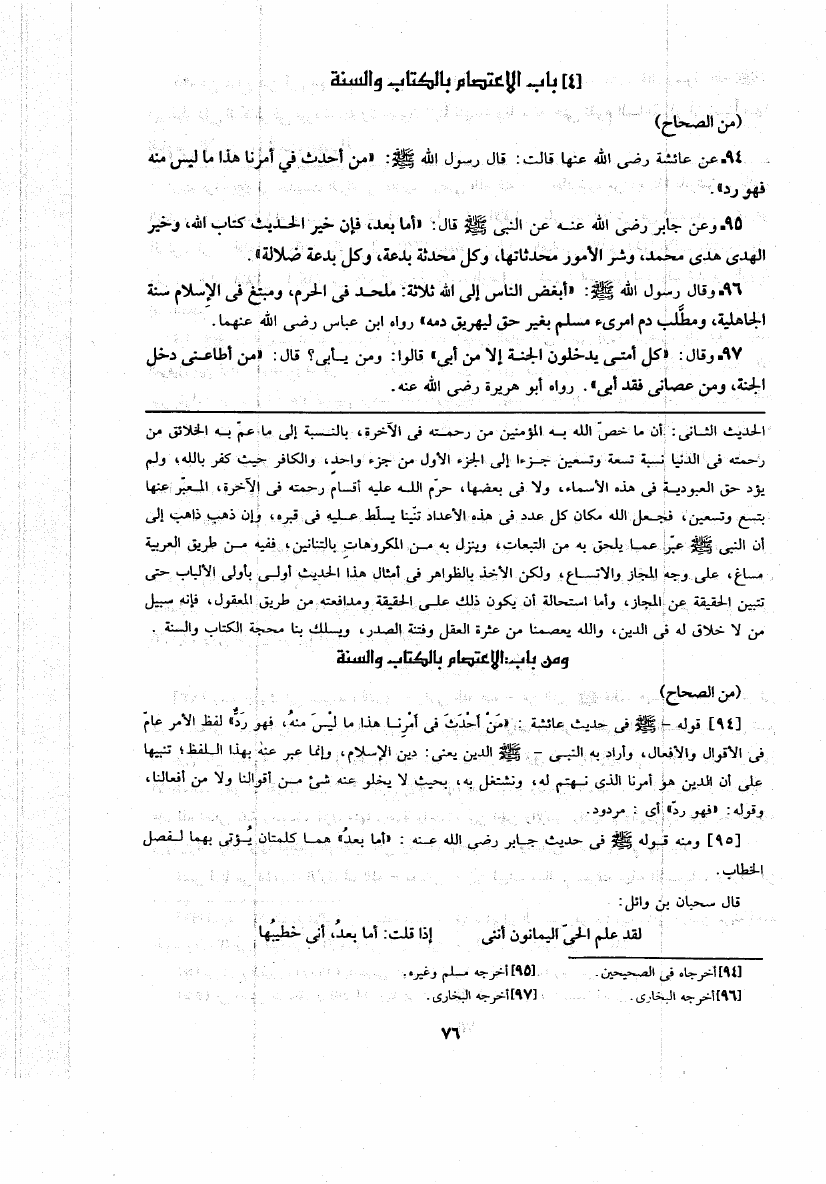 [٤] باب الاعتصام بالكتاب والسنة
(من الصحاح)
٩٤ـ عن عائشة رضى الله عنها قالت: قال رسول الله ﷺ: «من أحدث في أمرنا هذا ما ليس منه
فهو رد».
٩٥ـ وعن جابر رضى الله عنه عن النبى ﷺ قال: «أما بعد، فإن خير الحديث كتاب الله، وخير
الهدى هدى محمد، وشر الأمور محدثاتها، وكل محدثة بدعة، وكل بدعة ضلالة».
٩٦ـ وقال رسول الله ﷺ: «أبغض الناس إلى الله ثلاثة: ملحد فى الحرم، ومبتغ فى الإسلام سنة
الجاهلية، ومطَّلب دم امرىء مسلم بغير حق ليهريق دمه» رواه ابن عباس رضى الله عنهما.
٩٧ـ وقال: «كل أمتى يدخلون الجنة إلا من أبى» قالوا: ومن يأبى؟ قال: «من أطاعنى دخل
الجنة، ومن عصانى فقد أبى». رواه أبو هريرة رضى الله عنه.
الحديث الثانى: أن ما خصّ الله به المؤمنين من رحمته فى الآخرة، بالنسبة إلى ما عمّ به الخلائق من
رحمته فى الدنيا نسبة تسعة وتسعين جزءا إلى الجزء الأول من جزء واحد، والكافر حيث كفر بالله، ولم
يؤد حق العبودية فى هذه الأسماء، ولا فى بعضها، حرّم الله عليه أقسام رحمته فى الآخرة، المعبّر عنها
بتسع وتسعين، فجعل الله مكان كل عدد فى هذه الأعداد تنّينا يسلّط عليه فى قبره، وإن ذهب ذاهب إلى
أن النبى ﷺ عبّر عما يلحق به من التبعات، وينزل به من المكروهات بالتنانين، ففيه من طريق العربية
مساغ، على وجه المجاز والاتساع، ولكن الأخذ بالظواهر فى أمثال هذا الحديث أولى بأولى الألباب حتى
تتبين الحقيقة عن المجاز، وأما استحالة أن يكون ذلك على الحقيقة ومدافعته من طريق المعقول، فإنه سبيل
من لا خلاق له فى الدين، والله يعصمنا من عثرة العقل وفتنة الصدر، ويسلك بنا محجة الكتاب والسنة .
ومن باب:الاعتصام بالكتاب والسنة
(من الصحاح)
[٩٤] قوله – ﷺ فى حديث عائشة : «مَنْ أحْدَثَ فى أمْرِنا هذا ما ليْسَ منهُ، فهو رَدٌّ» لفظ الأمر عامّ
فى الأقوال والأفعال، وأراد به النبى – ﷺ الدين يعنى: دين الإسلام، وإنما عبر عنه بهذا اللفظ؛ تنبيها
على أن الدين هو أمرنا الذى نهتم له، ونشتغل به، بحيث لا يخلو عنه شئ من أقوالنا ولا من أفعالنا،
وقوله: «فهو ردّ» أى : مردود.
[٩٥] ومنه قوله ﷺ فى حديث جابر رضى الله عنه : «أما بعدُ» هما كلمتان يُؤتى بهما لفصل
الخطاب.
قال سحبان بن وائل:
لقد علم الحىّ اليمانون أننى إذا قلت: أما بعدُ، أنى خطيبُها
[٩٤] أخرجاه فى الصحيحين. [٩٥] أخرجه مسلم وغيره.
[٩٦] أخرجه البخارى. [٩٧] أخرجه البخارى.
٧٦